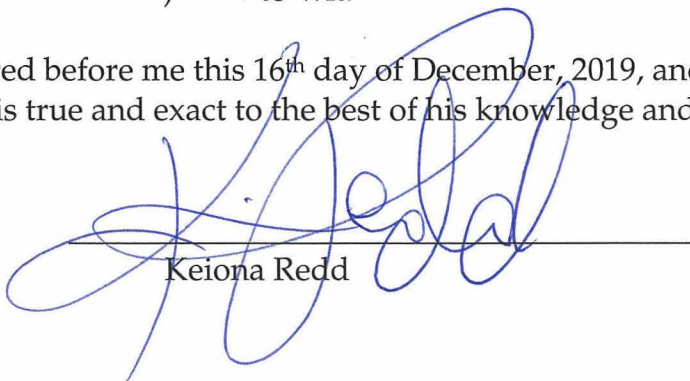 ed before me this 16th day of December, 2019, and
is true and exact to the best of his knowledge and
Keiona Redd